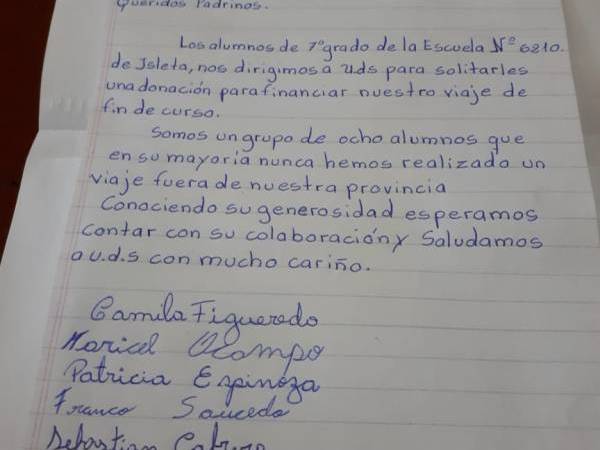 Queridos Padrinos.
Los alumnos de 7º grado de la Escuela Nº 6210.
de Isleta, nos dirigimos a Uds para solitarles
una donación para financiar nuestro viaje de
fin de curso.
Somos un grupo de ocho alumnos que
en su mayoría nunca hemos realizado un
viaje fuera de nuestra provincia
Conociendo su generosidad esperamos
contar con su colaboración y Saludamos
a u.d.s con mucho cariño.
Camila Figueredo
Maricel Ocampo
Patricia Espinoza
Franco Saucedo
Sebastian